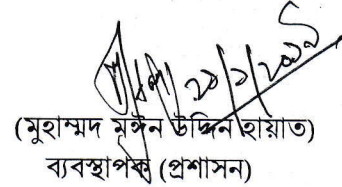 ২০/১/২০১৯
(মুহাম্মদ মঈন উদ্দিন হায়াত)
ব্যবস্থাপক (প্রশাসন)